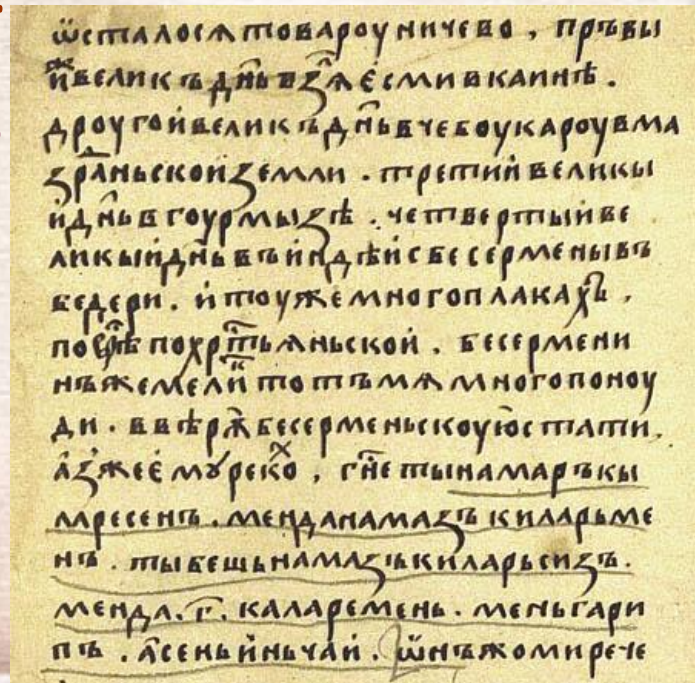 ѿсталося товароу ничево , пръвы
й же великъ д҃нь взѧ҃ есми в каинѣ .
дроугой великъ д҃нь в чебоукароу в ма
зра҃ньской земли . третий великы
й д҃нь в гоурмызѣ . четвертый ве
ликый д҃нь въ индѣй с бесермены въ
бедери . и тоу же много плакахъ ,
по вѣ҃рѣ по хрт҃ьяньской . бесермени
нъ же мелик тотъ мѧ много поноу
ди . в вѣрꙋ бесерменьскоую стати .
аз же емꙋ рекох , г҃не ты намаръ кы
ларесенъ . менда намазъ киларьме
нъ . ты бешь намазъ киларьсизъ .
менда . г҃ . каларемень . мень гари
пъ . а сень иньчай . ѿнъ жо ми рече